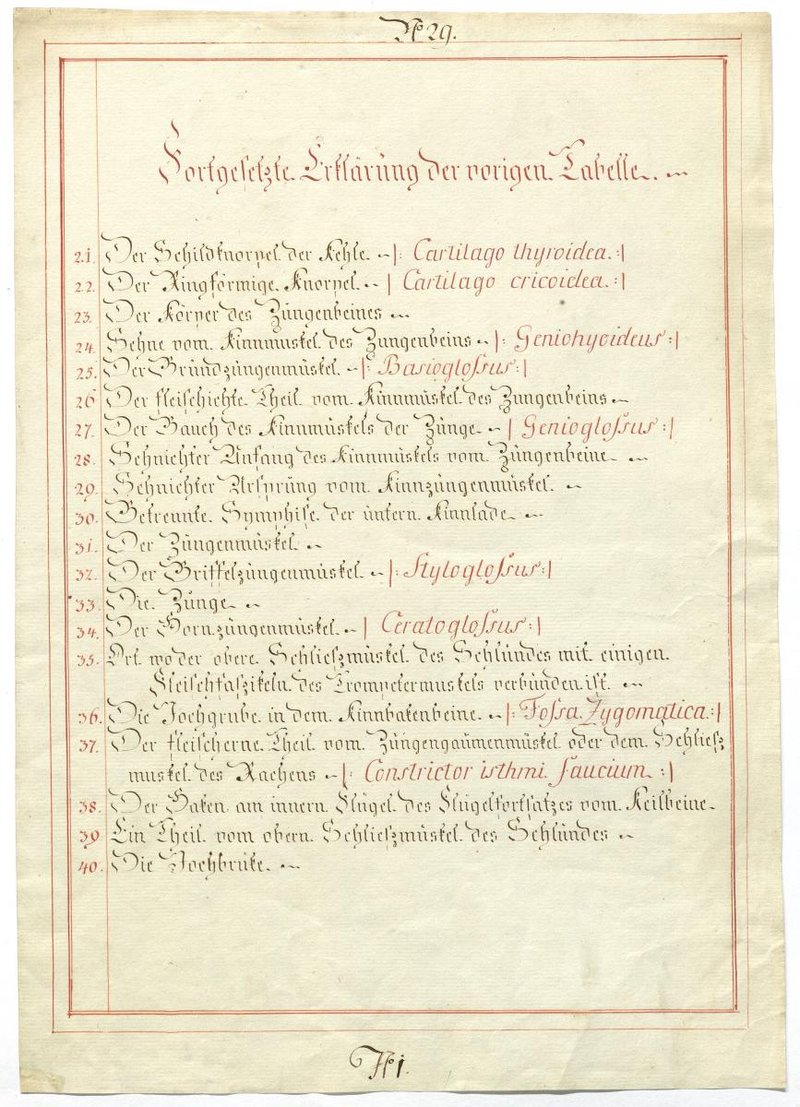 No 29.
Fortgesetzte Erklärung der vorigen Tabelle.
21. Der Schildknorpel der Kehle. |: Cartilago thyroidea. :|
22. Der Ringförmige Knorpel. | Cartilago cricoidea. :|
23. Der Körper des Zungenbeines
24. Sehne vom Kinnmuskel des Zungenbeins |: Geniohyoideus :|
25. Der Grundzungenmuskel. |: Basioglossus :|
26 Der fleischichte Theil vom Kinnmuskel des Zungenbeins
27. Der Bauch des Kinnmuskels der Zunge | Genioglossus :|
28. Sehnichter Anfang des Kinnmuskels vom Zungenbeine
29. Sehnichter Ursprung vom Kinnzungenmuskel.
30. Getrennte Symphise der untern Kinnlade
31. Der Zungenmuskel
32. Der Griffelzungenmuskel |: Styloglossus :|
33. Die Zunge
34. Der Hornzungenmuskel. | Ceratoglossus :|
35. Ort wo der obere Schlieszmuskel des Schlundes mit einigen
Fleischfaszikeln des Trompetermuskels verbunden ist.
36. Die Jochgrube in dem Kinnbakenbeine |: Fossa Zygomatica :|
37. Der fleischerne Theil vom Zungengaumenmuskel oder dem Schliesz
muskel des Rachens |: Constrictor isthmi faucium :|
38. Der Haken am innern Flügel des Flügelfortsatzes vom Keilbeine
39 Ein Theil vom obern Schlieszmuskel des Schlundes
40. Die Jochbrüke.